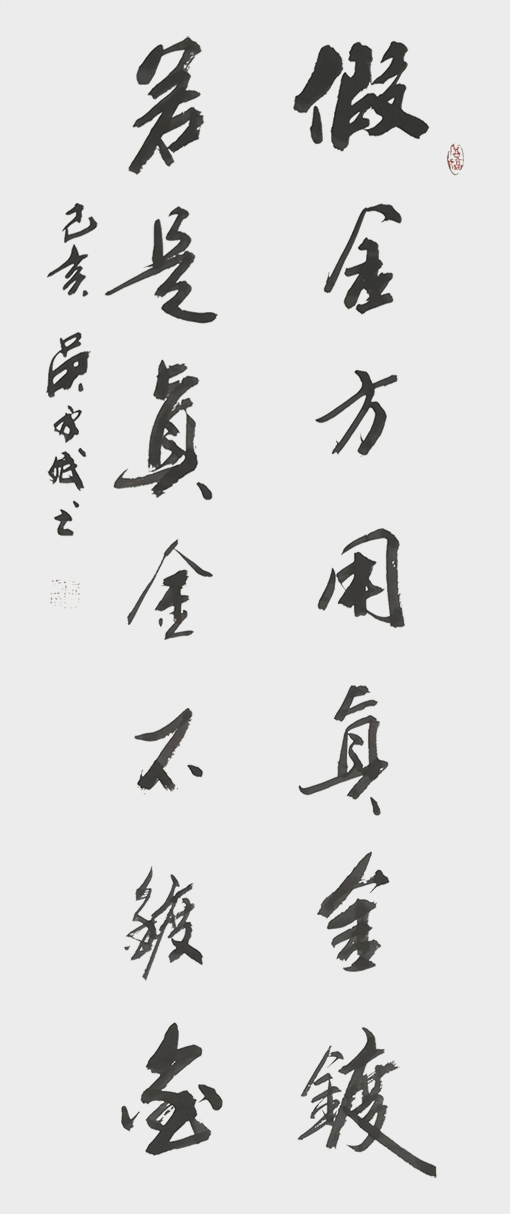 假金方用真金鍍
若是真金不鍍金
己亥 書